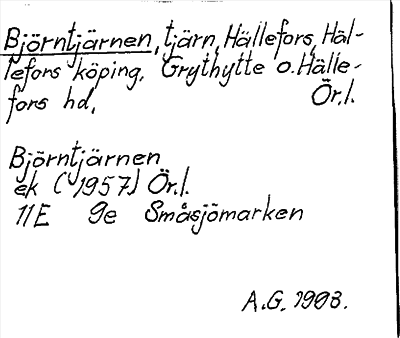 Björntjärnen, tjärn, Hällefors, Häl-
lefors köping, Grythytte o. Hälle-
fors hd, Ör.l.
Björntjärnen
ek (1957) Ör.l.
11E 9e Småsjömarken
A.G. 1903.